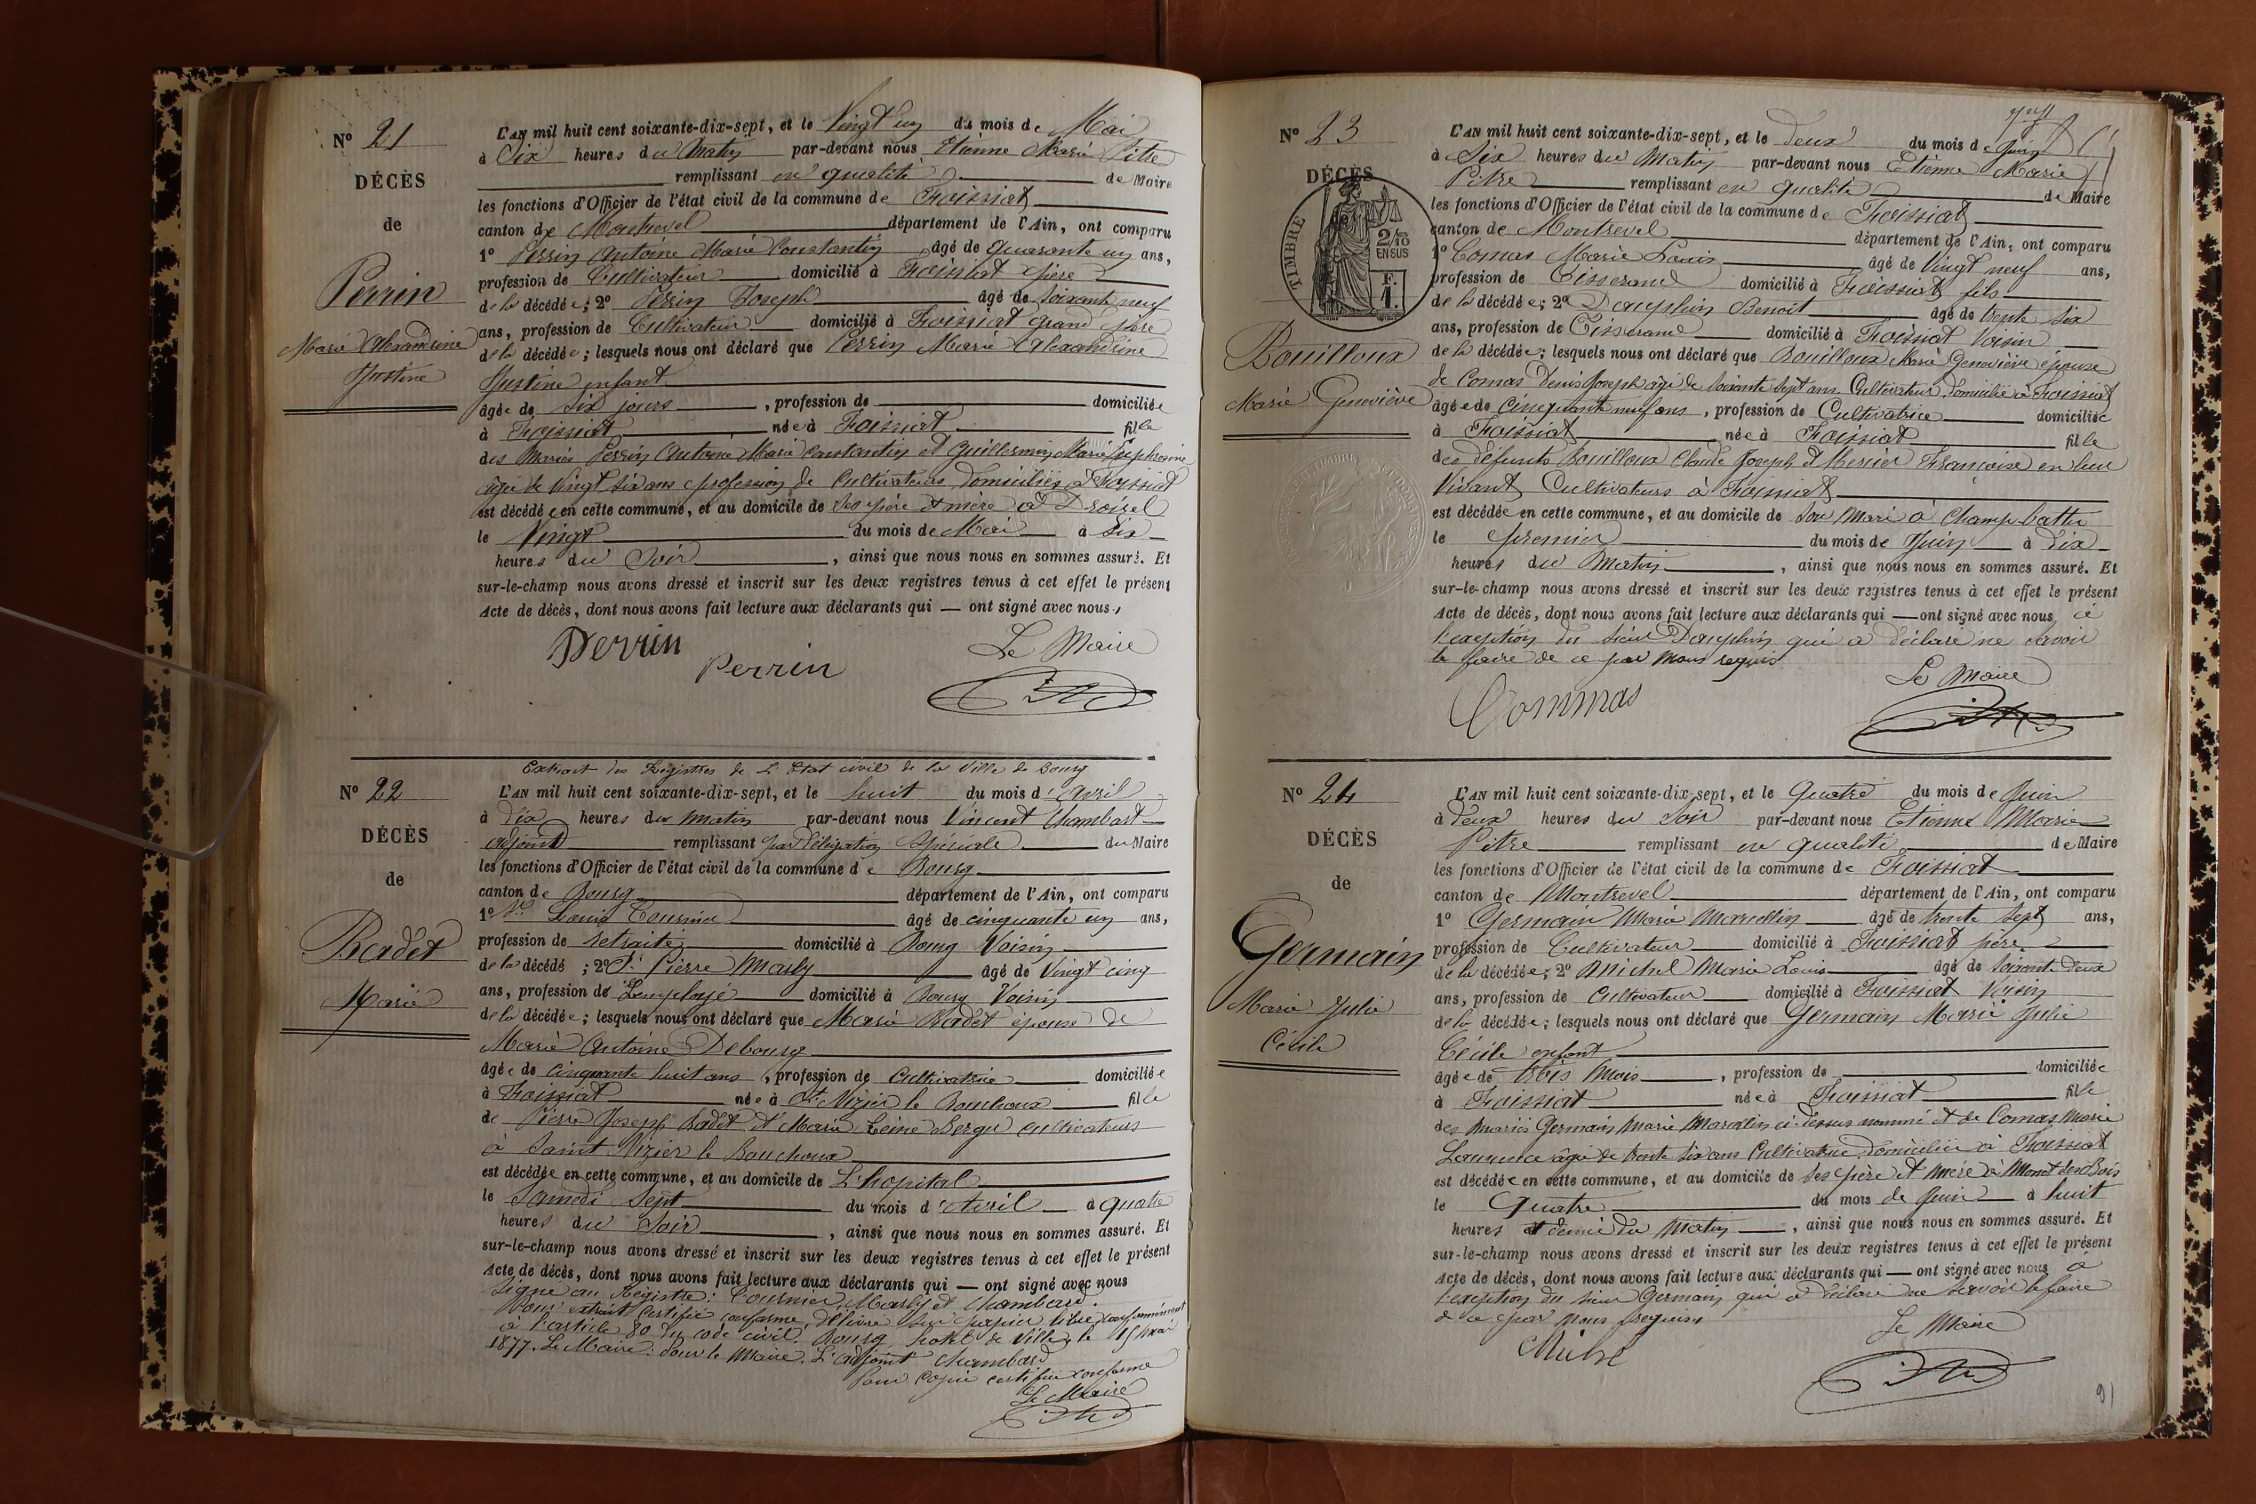 N° 21
DÉCÈS
de
Perrin
Marie Alexandrine
Justine
L'AN mil huit cent soixante-dix-sept, et le Vingt un du mois de Mai
à Six heures du Matin par-devant nous Etienne Marie Pitre
remplissant en qualité de Maire
les fonctions d'Officier de l'état civil de la commune de Foissiat
canton de Montrevel département de l'Ain, ont comparu
1° Perrin Antoine Marie Constantin âgé de quarante un ans,
profession de Cultivateur domicilié à Foissiat père
de la décédée; 2° Perrin Joseph âgé de soixante neuf
ans, profession de Cultivateur domicilié à Foissiat grand père
de la décédée; lesquels nous ont déclaré que Perrin Marie Alexandrine
Justine enfant
âgée de Six jours, profession de domiciliée
à Foissiat née à Foissiat fille
des Mariés Perrin Antoine Marie Constantin et Guillermin Marie Josephine
âgée de Vingt six ans profession de Cultivateurs domiciliés à Foissiat
est décédée en cette commune, et au domicile de ses père et mère à
le Vingt du mois de Mai à Six
heures du Soir, ainsi que nous nous en sommes assuré. Et
sur-le-champ nous avons dressé et inscrit sur les deux registres tenus à cet effet le présent
Acte de décès, dont nous avons fait lecture aux déclarants qui — ont signé avec nous,
Perrin
Perrin
Le Maire
Pitre
N° 22
DÉCÈS
de
Badet
Marie
Extrait des Registres de l'Etat civil de la Ville de Bourg
L'AN mil huit cent soixante-dix-sept, et le huit du mois d'avril
à dix heures du matin par-devant nous Vincent Chambard
adjoint remplissant par délégation spéciale du Maire
les fonctions d'Officier de l'état civil de la commune de Bourg
canton de Bourg département de l'Ain, ont comparu
1° Sr Louis Tournier âgé de cinquante un ans,
profession de retraité domicilié à Bourg Voisin
de la décédé; 2° Sr Pierre Marly âgé de Vingt cinq
ans, profession de employé domicilié à Bourg Voisin
de la décédée; lesquels nous ont déclaré que Marie Badet épouse de
Marie Antoine Debourg
âgée de cinquante huit ans, profession de Cultivatrice domiciliée
à Foissiat née à St Nizier le Bouchoux fille
de Pierre Joseph Badet et Marie Reine cultivateurs
à Saint Nizier le Bouchoux
est décédée en cette commune, et au domicile de L'hopital
le Samedi Sept du mois d'Avril à quatre
heures du Soir, ainsi que nous nous en sommes assuré. Et
sur-le-champ nous avons dressé et inscrit sur les deux registres tenus à cet effet le présent
Acte de décès, dont nous avons fait lecture aux déclarants qui — ont signé avec nous
Signé au Registre: Tournier, Marly et Chambard.
Pour extrait certifié conforme, délivré sur papier libre conformément
à l'article 80 du code civil. Bourg hotel de Ville, le 15 mai
1877. Le Maire: pour le Maire. L'adjoint Chambard
Pour copie certifiée conforme
Le Maire
Pitre
N° 23
DÉCÈS
TIMBRE
2/10
EN SUS
F.
1.
Bouilloux
Marie Geneviève
L'AN mil huit cent soixante-dix-sept, et le deux du mois de Juin
à Six heures du Matin par-devant nous Etienne Marie
Pitre remplissant en qualité de Maire
les fonctions d'Officier de l'état civil de la commune de Foissiat
canton de Montrevel département de l'Ain, ont comparu
1° Comas Marie Louis âgé de Vingt neuf ans,
profession de Tisserand domicilié à Foissiat fils
de la décédée; 2° Dauphin Benoit âgé de trente six
ans, profession de Tisserand domicilié à Foissiat Voisin
de la décédée; lesquels nous ont déclaré que Bouilloux Marie Geneviève épouse
de Comas Denis Joseph âgé de soixante sept ans Cultivateur domicilié à Foissiat
âgée de Cinquante neuf ans, profession de Cultivatrice domiciliée
à Foissiat née à Foissiat fille
des défunts Bouilloux Claude Joseph et Mercier Françoise en leur
Vivant Cultivateurs à Foissiat
est décédée en cette commune, et au domicile de son Mari à Champ battu
le premier du mois de Juin à dix
heures du Matin, ainsi que nous nous en sommes assuré. Et
sur-le-champ nous avons dressé et inscrit sur les deux registres tenus à cet effet le présent
Acte de décès, dont nous avons fait lecture aux déclarants qui — ont signé avec nous à
l'exeption du sieur Dauphin qui a déclaré ne savoir
le faire de ce par nous requis
Commas
Le Maire
Pitre
N° 24
DÉCÈS
de
Germain
Marie Julie
Cécile
L'AN mil huit cent soixante-dix-sept, et le Quatre du mois de Juin
à deux heures du Soir par-devant nous Etienne Marie
Pitre remplissant en qualité de Maire
les fonctions d'Officier de l'état civil de la commune de Foissiat
canton de Montrevel département de l'Ain, ont comparu
1° Germain Marie Marcelin âgé de trente sept ans,
profession de Cultivateur domicilié à Foissiat père
de la décédée; 2° Michel Marie Louis âgé de soixante deux
ans, profession de Cultivateur domicilié à Foissiat Voisin
de la décédée; lesquels nous ont déclaré que Germain Marie Julie
Cécile enfant
âgée de trois Mois, profession de domiciliée
à Foissiat née à Foissiat fille
des Mariés Germain Marie Marcelin ci-dessus nommé et de Comas Marie
Laurence âgée de trente six ans Cultivatrice domiciliée à Foissiat
est décédée en cette commune, et au domicile de ses père et mère à Monet des Bois
le Quatre du mois de Juin à huit
heures et demie du Matin, ainsi que nous nous en sommes assuré. Et
sur-le-champ nous avons dressé et inscrit sur les deux registres tenus à cet effet le présent
Acte de décès, dont nous avons fait lecture aux déclarants qui — ont signé avec nous à
l'exeption du sieur Germain qui a déclaré ne savoir le faire
de ce par nous requis
Michel
Le Maire
Pitre
91